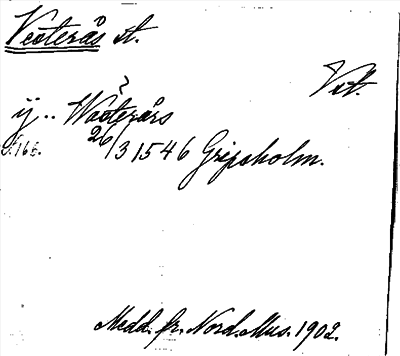 Västerås st.
Vst.
ij .. Wästerårs
S. 166.
26/3 1546 Gripsholm.
Medd. fr. Nord. Mus. 1902.